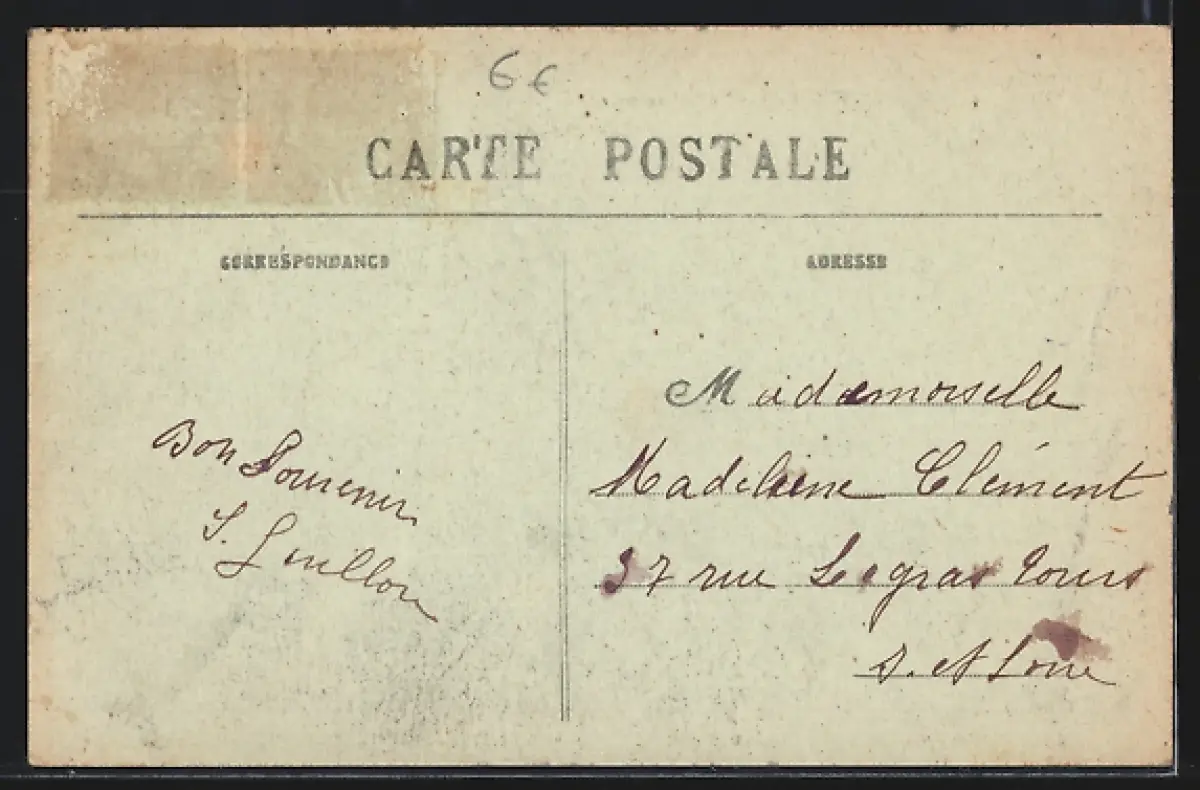 6 €
CARTE POSTALE
CORRESPONDANCE
ADRESSE
Bon Souvenir
S. Guillon
Mademoiselle
Madeleine Clément
37 rue Legras Tours
I. et Loire